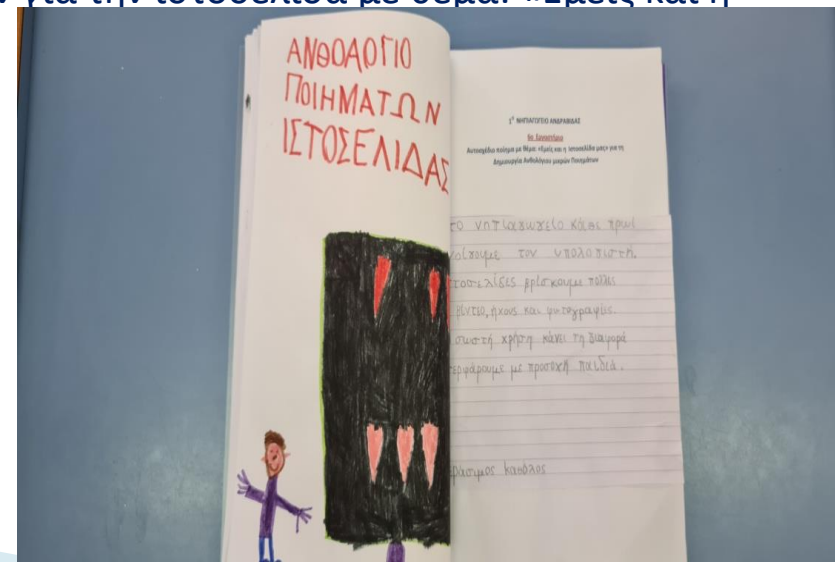 για την ιστοσελίδα με θέμα: «Εμείς και η
ΑΝΘΟΛΟΓΙΟ
ΠΟΙΗΜΑΤΩΝ
ΙΣΤΟΣΕΛΙΔΑΣ
1ο ΝΗΠΙΑΓΩΓΕΙΟ ΑΝΔΡΑΒΙΔΑΣ
Εργαστήριο
Αυτοσχέδιο ποίημα με θέμα: «Εμείς και η ιστοσελίδα μας» για τη
Δημιουργία Ανθολόγιου μικρών Ποιημάτων
το νηπιαγωγείο κάθε πρωί
τον υπολογιστή.
βρίσκουμε πολλές
βίντεο, ήχους και φωτογραφίες.
σωστή χρήση κάνει τη διαφορά
με προσοχή παιδιά.